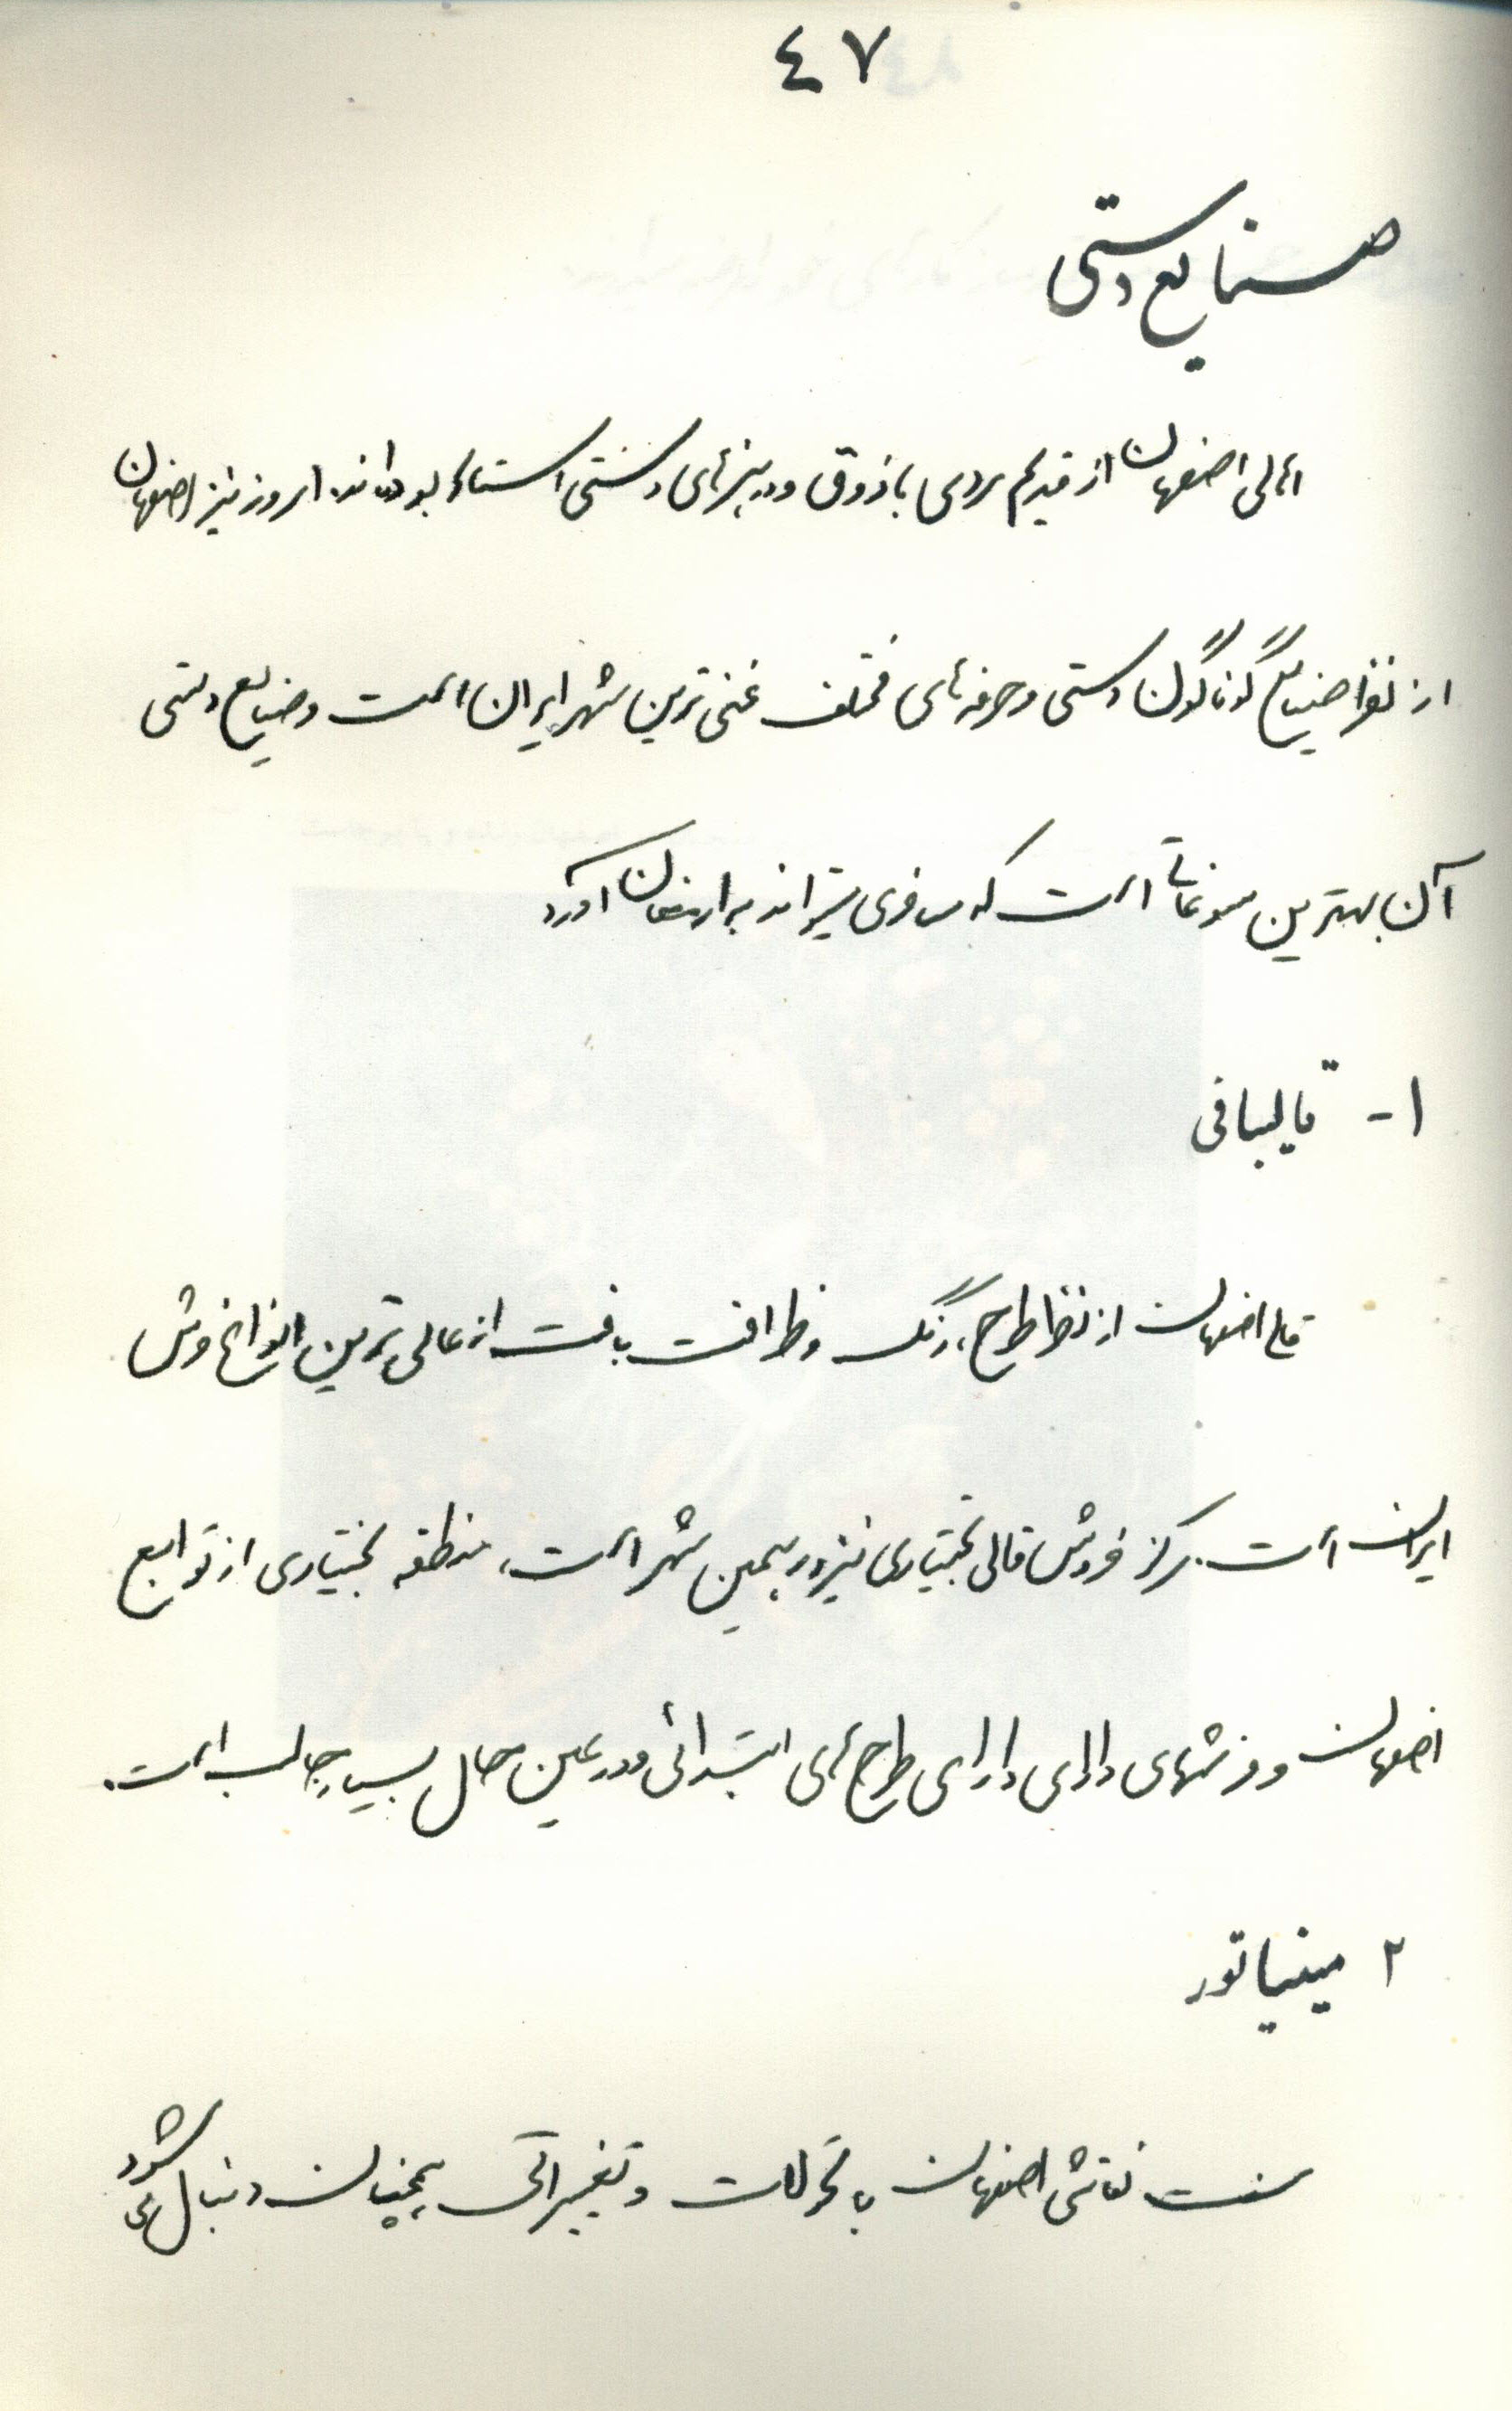 ٤٧
صنایع دستی
اهالی اصفهان از قدیم مردمی باذوق و در هنرهای دستی استاد بوده‌اند. امروز نیز اصفهان
از نظر صنایع گوناگون دستی و حرفه‌های مختلف غنی ترین شهر ایران است و صنایع دستی
آن بهترین سوغات است که مسافری میتواند به ارمغان آورد
۱- قالیبافی
قالی اصفهان از نظر طرح، رنگ و ظرافت بافت از عالی ترین انواع فرش
ایران است. مرکز فروش قالی بختیاری نیز در همین شهر است، منطقه بختیاری از توابع
اصفهان و فرشهای دارای دارای طرح‌های ابتدائی و در عین حال بسیار جالب است.
۲ مینیاتور
سنت نقاشی اصفهان با تحولات و تغییراتی همچنان دنبال می شود